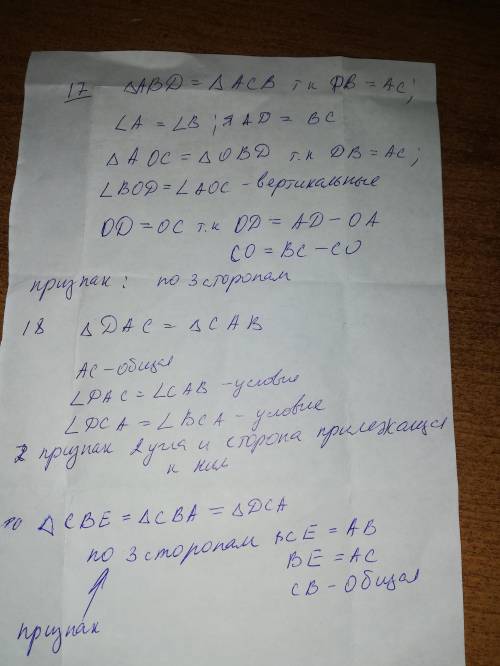 17 △ABD = △ACB т.к DB = AC;
∠A = ∠B; AD = BC
△AOC = △OBD т.к DB = AC;
∠BOD = ∠AOC - вертикальные
OD = OC т.к OD = AD - OA
CO = BC - CO
признак: по 3 сторонам
18 △DAC = △CAB
AC - общая
∠DAC = ∠CAB - условие
∠DCA = ∠BCA - условие
2 признак 2 угла и сторона прилежащая
к ним
△CBE = △CBA = △DCA
по 3 сторонам CE = AB
BE = AC
CB - общая
признак